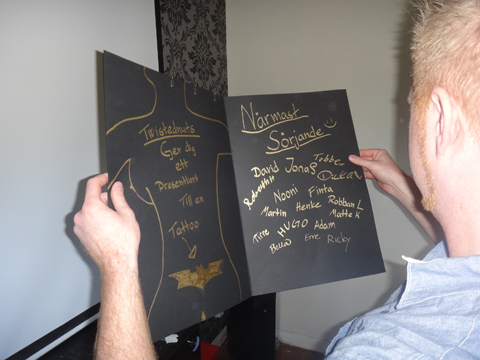 Twistednuts
Ger dig
ett
Presentkort
Till en
Tattoo
Närmast
Sörjande
David Jonas Tobbe
Nooni Finta
Martin Henke Robban L
Tirre HUGO Adam Matte K
Bella Erre Ricky